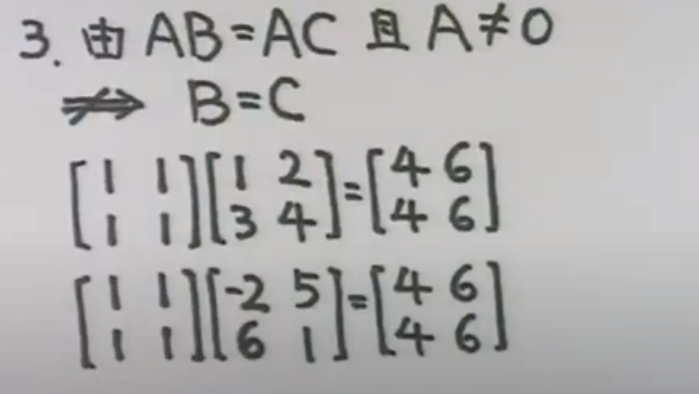 3. 由 AB=AC 且 A≠0
⇏ B=C
[1 1; 1 1][1 2; 3 4]=[4 6; 4 6]
[1 1; 1 1][-2 5; 6 1]=[4 6; 4 6]